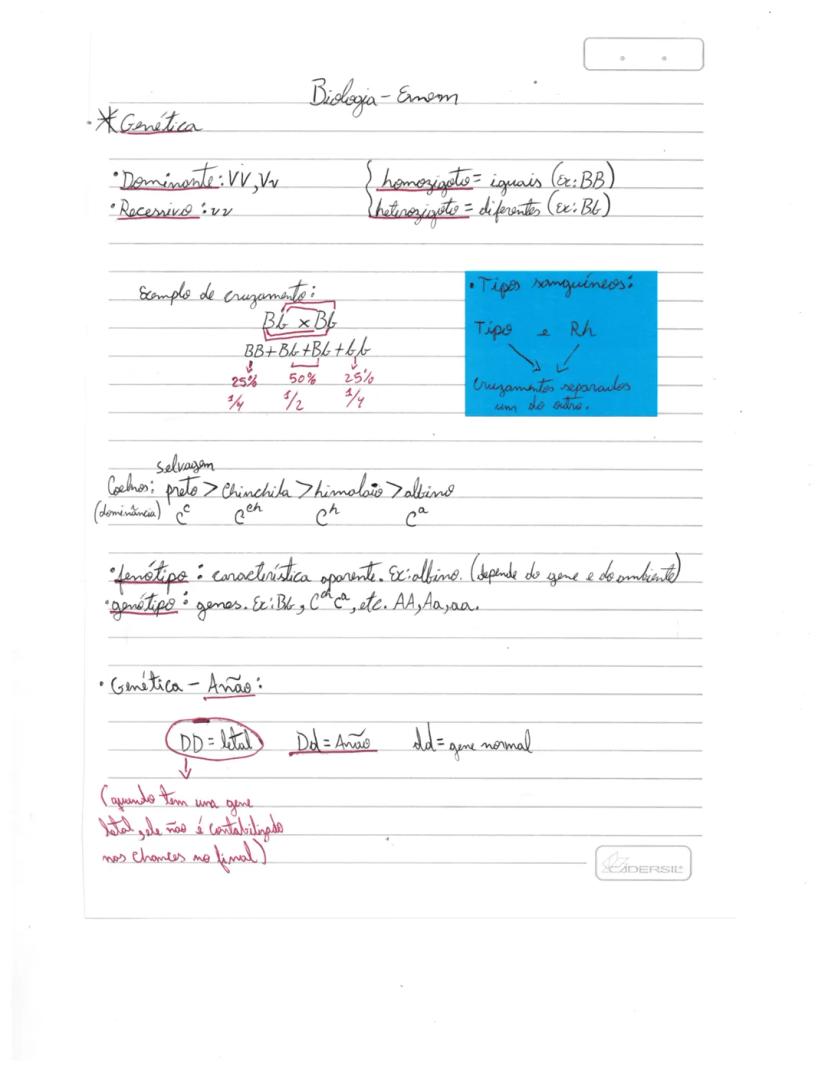 Biologia - Enem
* Genética
• Dominante: VV, Vv
• Recessivo: vv
{ homozigoto = iguais (Ex: BB)
{ heterozigoto = diferentes (Ex: Bb)
Exemplo de cruzamento:
Bb x Bb
BB + Bb + Bb + bb
25% 50% 25%
1/4 1/2 1/4
• Tipos sanguíneos:
Tipo e Rh
Cruzamentos separados
um do outro.
selvagem
Coelhos: preto > chinchila > himalaio > albino
(dominância) Cᶜ Cᶜʰ Cʰ Cᵃ
• fenótipo: característica aparente. Ex: albino. (depende do gene e do ambiente)
• genótipo: genes. Ex: Bb, Cᶜʰ Cᵃ, etc. AA, Aa, aa.
• Genética - Anão:
DD = letal Dd = Anão dd = gene normal
(quando tem uma gene
letal, ele não é contabilizado
nas chances no final)
CADERSIL